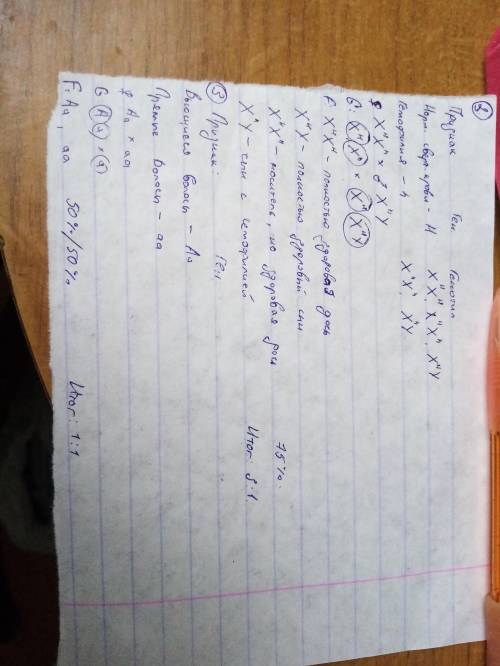 ②
Признак Ген Генотип
Норм. сверт. крови - H XᴴXᴴ, XᴴXʰ, XᴴY
Гемофилия - h XʰXʰ, XʰY
♀ XᴴXʰ × ♂ XᴴY
G: Xᴴ Xʰ × Xᴴ Y
F: XᴴXᴴ - полностью здоровая дочь
XᴴY - полностью здоровый сын
XᴴXʰ - носитель, но здоровая дочь 75%.
XʰY - сын с гемофилией Итог: 3:1
③ Признак: Ген
Вьющиеся волосы - Aa
Прямые волосы - aa
♀ Aa × aa
G A a × a
F: Aa, aa 50%/50% Итог: 1:1